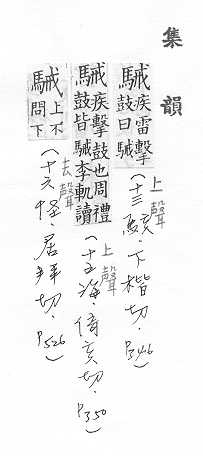 集韻
駴疾雷擊鼓曰駴
上聲
(十三駭.下楷切.P346)
駴疾擊鼓也周禮鼓皆駴李軌讀
上聲
(十五海.倚亥切.P350)
駴上不問下
去聲
(十六怪.居拜切.P526)